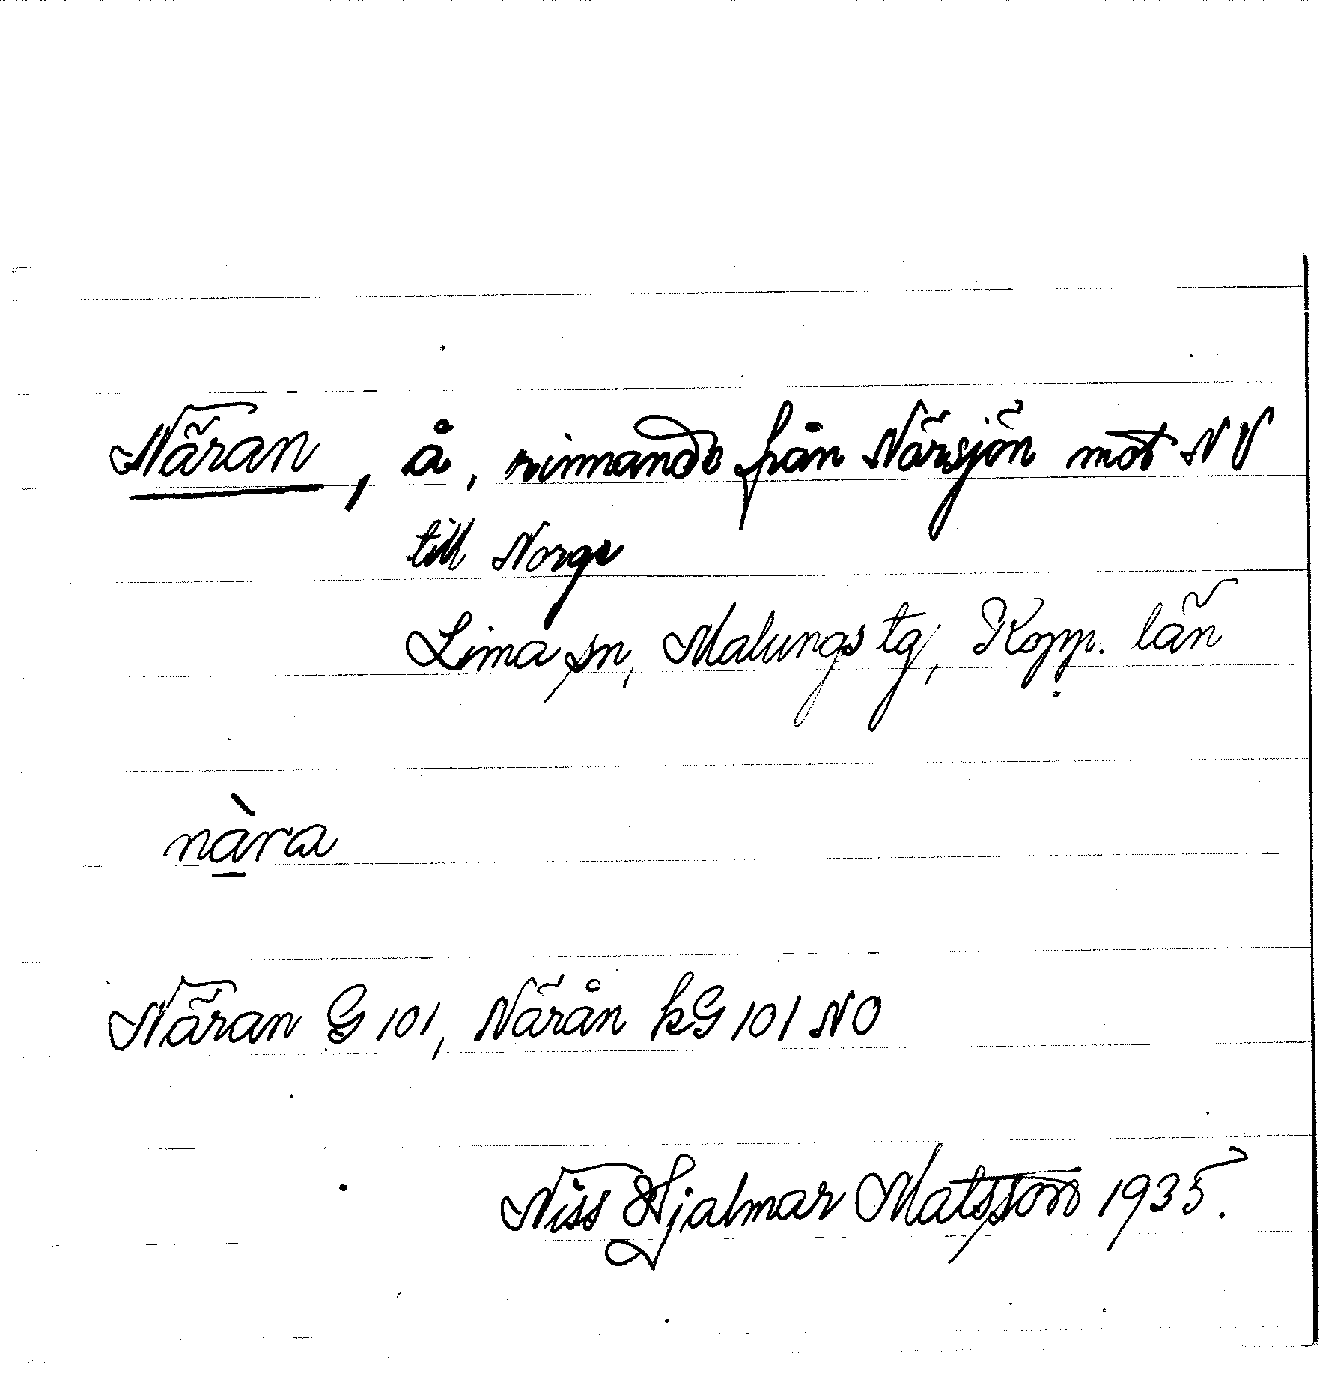 Näran, å, rinnande från Närsjön mot NV
till Norge
Lima sn, Malungs tg, Kopp. län
nàra
Näran G 101, Närån kG 101 NO
Niss Hjalmar Matsson 1935.